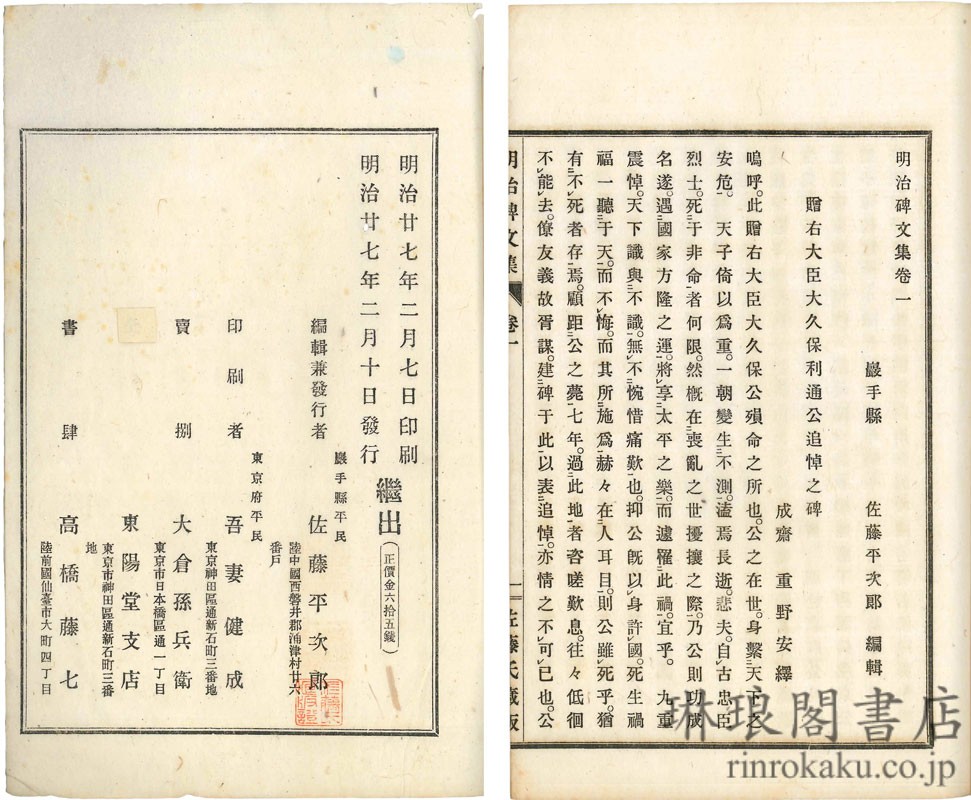 明治碑文集卷一
巖手縣 佐藤平次郎 編輯
贈右大臣大久保利通公追悼之碑
成齋 重野安繹
嗚呼。此贈右大臣大久保公殞命之所也。公之在世。身繫天下之
安危。天子倚以爲重。一朝變生不測。溘焉長逝。悲夫。自古忠臣
烈士。死于非命者何限。然槪在喪亂之世擾攘之際。乃公則功成
名遂。遇國家方隆之運。將享太平之樂。而遽罹此禍。宜乎。九重
震悼。天下識與不識。無不惋惜痛歎也。抑公旣以身許國。死生禍
福一聽于天。而不悔。而其所施爲赫々在人耳目。則公雖死乎。猶
有不死者存焉。顧距公之薨七年。過此地者咨嗟歎息。往々低徊
不能去。僚友義故胥謀。建碑于此以表追悼。亦情之不可已也。公
明治碑文集 卷一 一 佐藤氏藏版
明治廿七年二月七日印刷
明治廿七年二月十日發行
繼出
(正價金六拾五錢)
巖手縣平民
編輯兼發行者 佐藤平次郎
陸中國西磐井郡涌津村廿六
番戶
東京府平民
印刷者 吾妻健成
東京神田區通新石町三番地
賣捌 大倉孫兵衛
東京市日本橋區通一丁目
東陽堂支店
東京市神田區通新石町三番
地
書肆 高橋藤七
陸前國仙臺市大町四丁目
琳琅閣書店
rinrokaku.co.jp